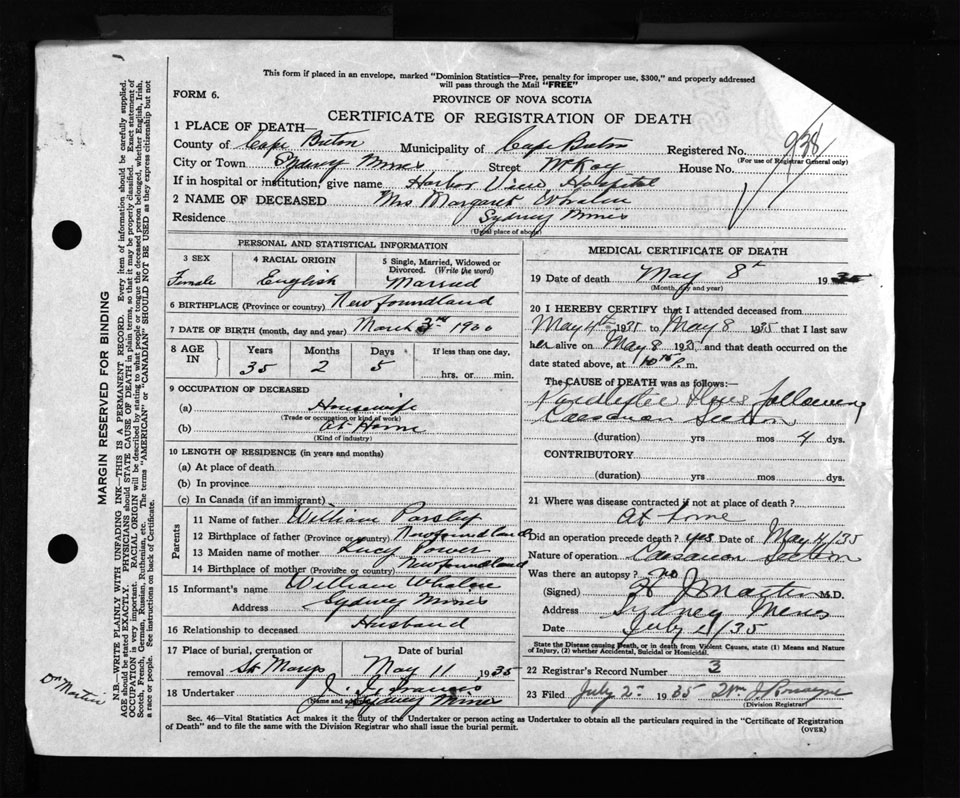 This form if placed in an envelope, marked "Dominion Statistics—Free, penalty for improper use, $300," and properly addressed
will pass through the Mail "FREE"
FORM 6.
PROVINCE OF NOVA SCOTIA
CERTIFICATE OF REGISTRATION OF DEATH
1 PLACE OF DEATH—
County of Cape Breton Municipality of Cape Breton Registered No. 938
(For use of Registrar General only)
City or Town Sydney Mines Street McKay House No.
If in hospital or institution, give name Harbor View Hospital
2 NAME OF DECEASED Mrs Margaret Whalen
Residence Sydney Mines
(Usual place of abode)
PERSONAL AND STATISTICAL INFORMATION
3 SEX 4 RACIAL ORIGIN 5 Single, Married, Widowed or
Divorced. (Write the word)
Female English Married
6 BIRTHPLACE (Province or country) Newfoundland
7 DATE OF BIRTH (month, day and year) March 3rd 1900
8 AGE IN Years Months Days If less than one day,
35 2 5 hrs. or min.
9 OCCUPATION OF DECEASED
(a) Housewife
(Trade or occupation or kind of work)
(b) At Home
(Kind of industry)
10 LENGTH OF RESIDENCE (in years and months)
(a) At place of death
(b) In province
(c) In Canada (if an immigrant)
Parents
11 Name of father William Parsley
12 Birthplace of father (Province or country) Newfoundland
13 Maiden name of mother Lucy Power
14 Birthplace of mother (Province or country) Newfoundland
15 Informant's name William Whalen
Address Sydney Mines
16 Relationship to deceased Husband
17 Place of burial, cremation or Date of burial
removal St Marys May 11 1935
18 Undertaker J.
(Name and address) Sydney Mines
MEDICAL CERTIFICATE OF DEATH
19 Date of death May 8th 1935
(Month, day and year)
20 I HEREBY CERTIFY that I attended deceased from
May 4th 1935 to May 8 1935 that I last saw
her alive on May 8 1935 and that death occurred on the
date stated above, at P. m.
The CAUSE OF DEATH was as follows:
Ileus following
Caesarian Section
(duration) yrs mos 4 dys.
CONTRIBUTORY
(duration) yrs mos dys.
21 Where was disease contracted if not at place of death?
At home
Did an operation precede death? yes Date of May 4/35
Nature of operation Caesarian Section
Was there an autopsy? no
(Signed) J Martin M.D.
Address Sydney Mines
Date July 2/35
State the Disease causing Death, or in death from Violent Causes, state (1) Means and Nature
of Injury, (2) whether Accidental, Suicidal or Homicidal.
22 Registrar's Record Number 3
23 Filed July 2nd 1935
(Division Registrar)
Sec. 46—Vital Statistics Act makes it the duty of the Undertaker or person acting as Undertaker to obtain all the particulars required in the "Certificate of Registration
of Death" and to file the same with the Division Registrar who shall issue the burial permit.
(OVER)
MARGIN RESERVED FOR BINDING
N.B.—WRITE PLAINLY WITH UNFADING INK—THIS IS A PERMANENT RECORD. Every item of information should be carefully supplied.
AGE should be stated EXACTLY. PHYSICIANS should STATE CAUSE OF DEATH in plain terms, so that it may be properly classified. Exact statement of
OCCUPATION is very important. RACIAL ORIGIN will be described by stating to what people or tongue the deceased person belonged, whether English, Irish,
Scotch, French, German, Russian, Ruthenian, etc. The terms "AMERICAN" or "CANADIAN" SHOULD NOT BE USED as they express citizenship but not
a race or people. See instructions on back of Certificate.
Dr Martin